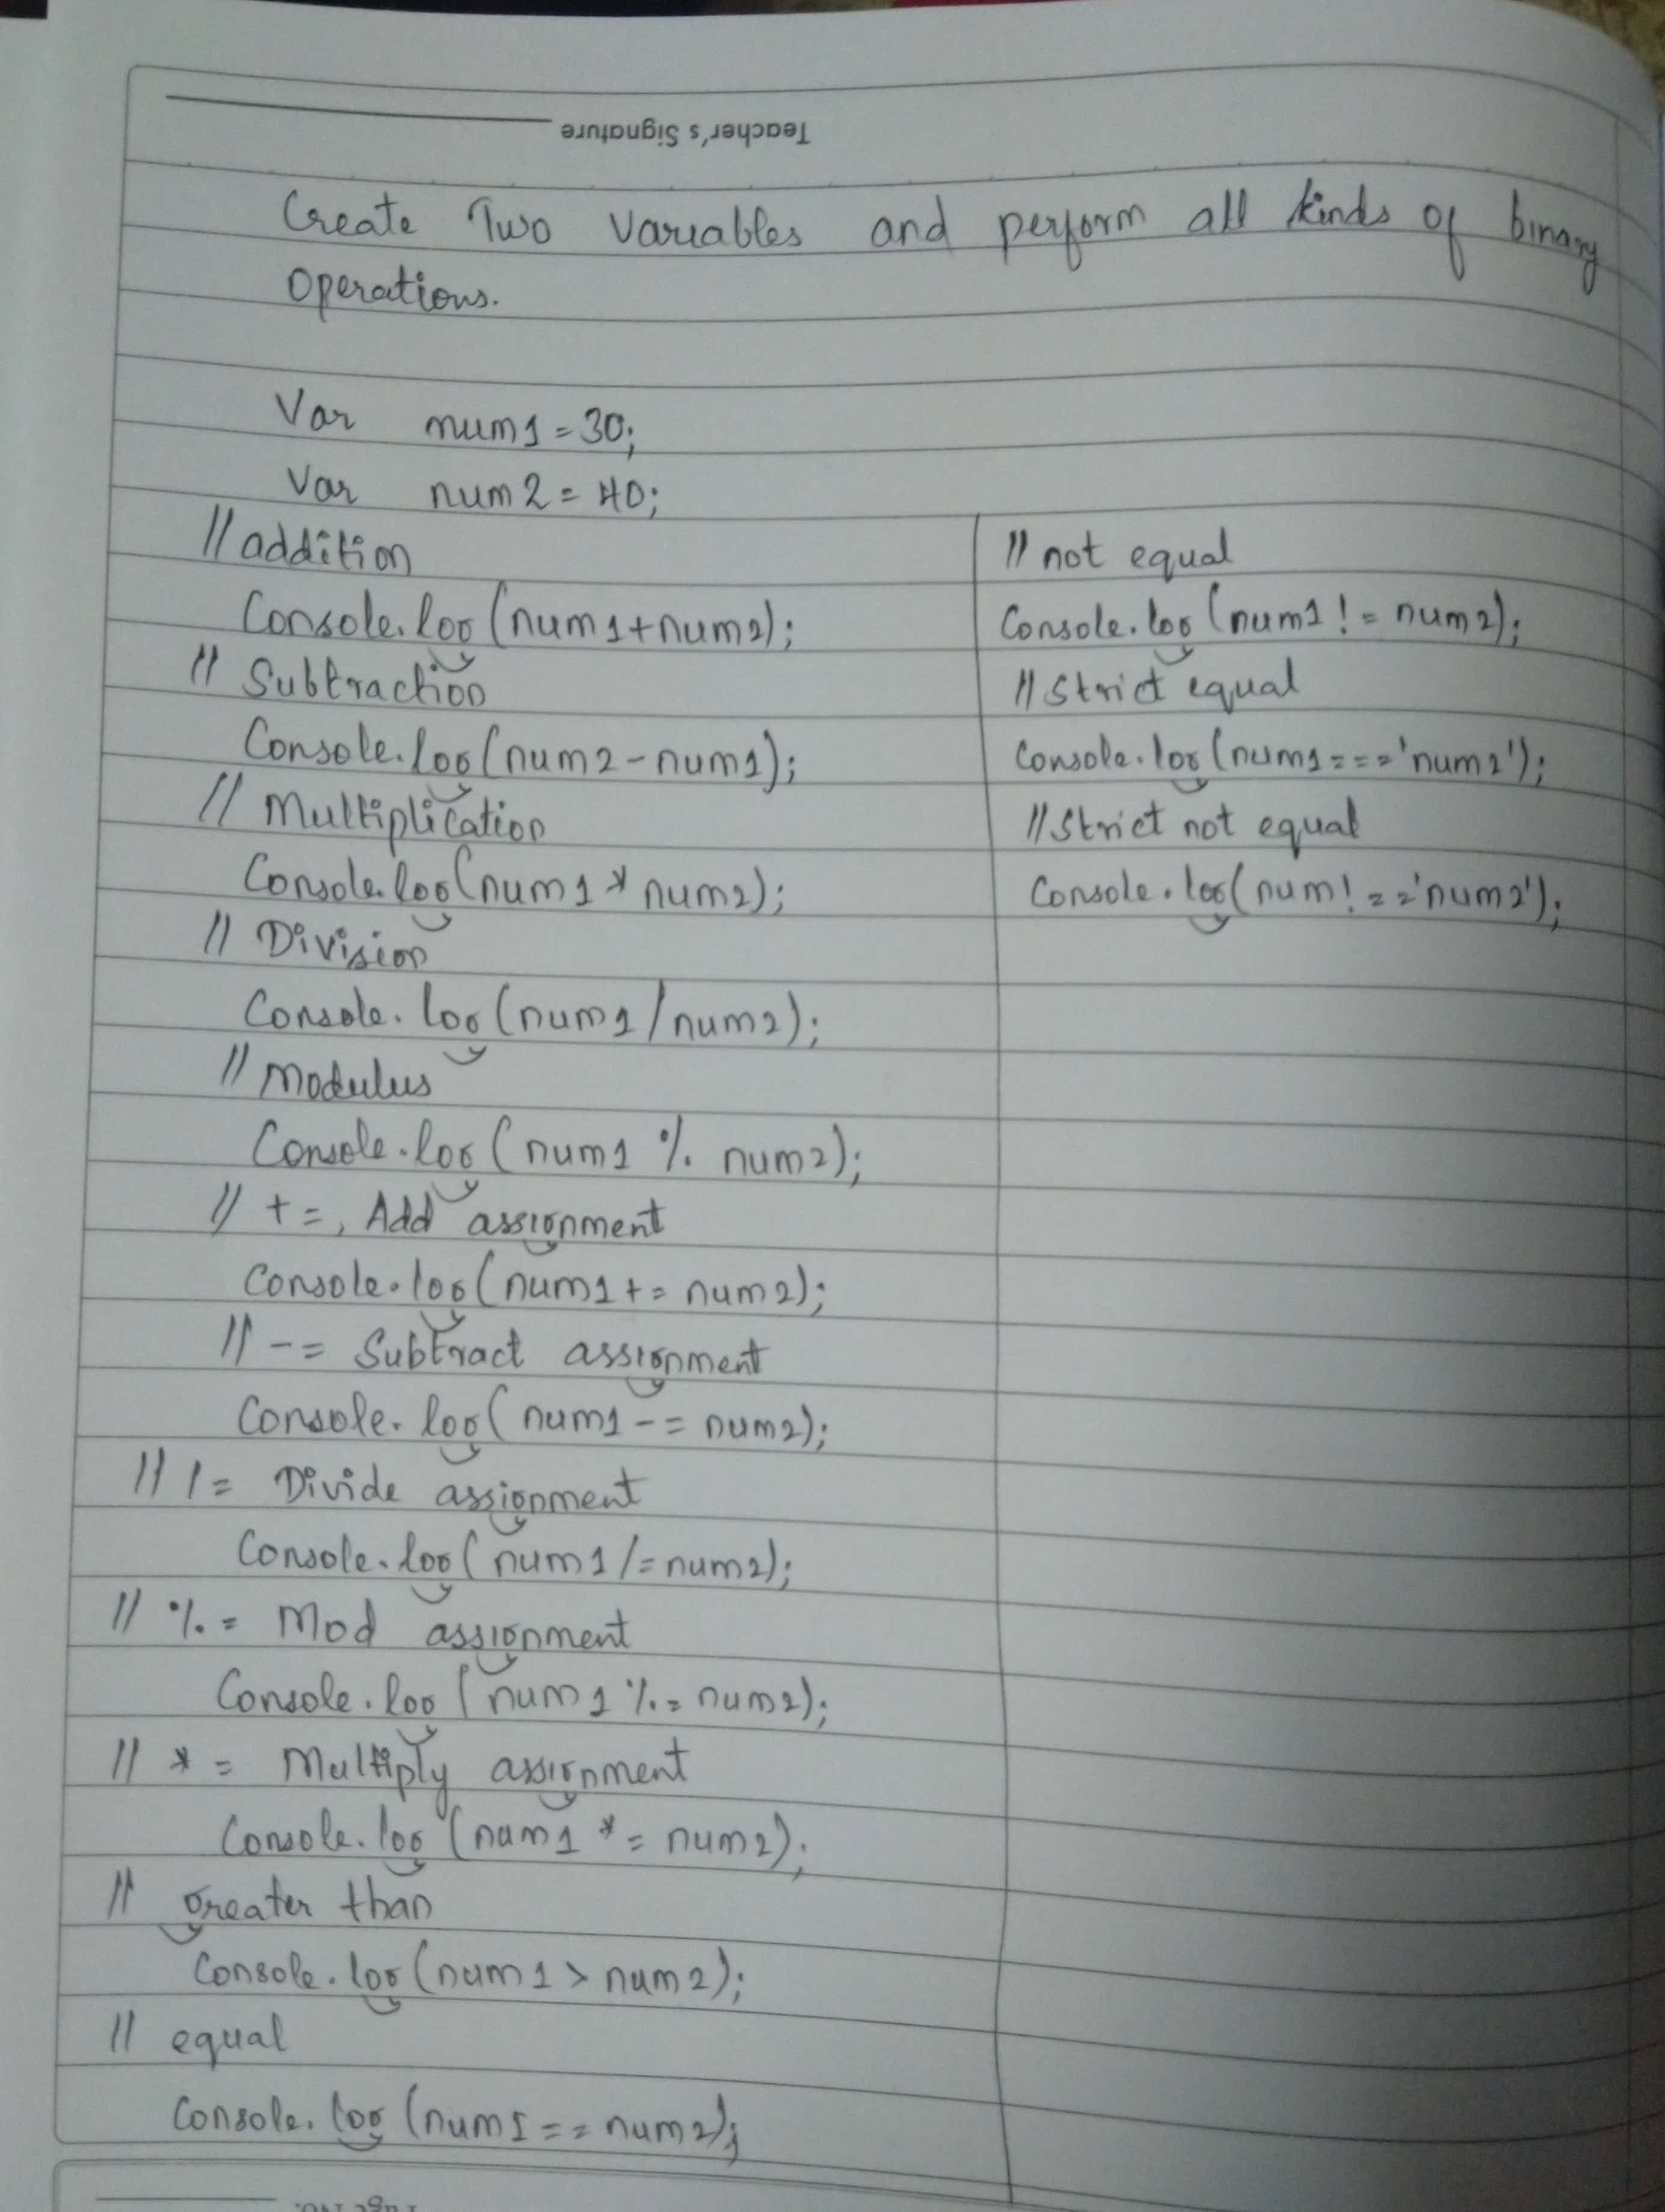 Teacher's Signature
Create Two Variables and perform all kinds of binary
operations.
Var num1 = 30;
Var num2 = 40;
// addition
Console.log(num1+num2);
// Subtraction
Console.log(num2-num1);
// Multiplication
Console.log(num1 * num2);
// Division
Console.log(num1/num2);
// Modulus
Console.log(num1 % num2);
// +=, Add assignment
Console.log(num1 += num2);
// -= Subtract assignment
Console.log(num1 -= num2);
// /= Divide assignment
Console.log(num1 /= num2);
// %= Mod assignment
Console.log(num1 %= num2);
// *= Multiply assignment
Console.log(num1 *= num2);
// Greater than
Console.log(num1 > num2);
// equal
Console.log(num1 == num2);
// not equal
Console.log(num1 != num2);
// Strict equal
Console.log(num1 === 'num2');
// Strict not equal
Console.log(num !== 'num2');